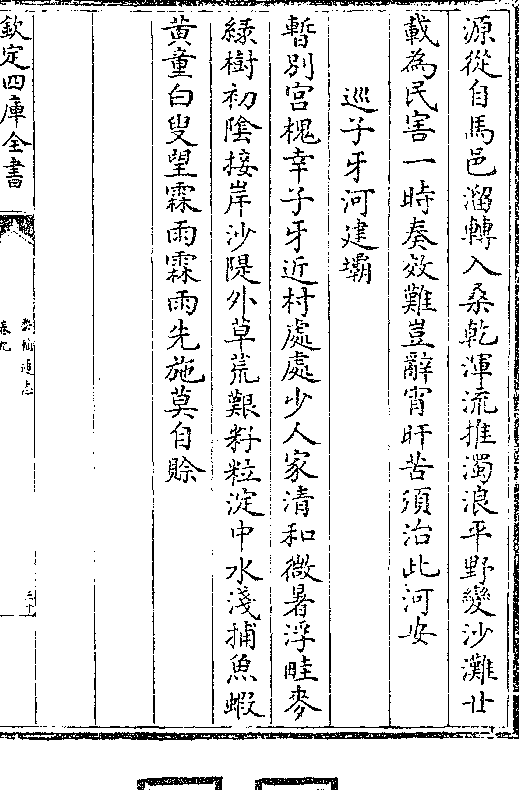 源從自馬邑溜轉入桑乾渾流推濁浪平野變沙灘廿
載為民害一時奏效難豈辭宵旰苦須治此河安
巡子牙河建壩
暫別宫槐幸子牙近村處處少人家清和微暑浮畦麥
緑樹初陰接岸沙隄外草荒艱籽粒淀中水淺捕魚蝦
黄童白叟望霖雨霖雨先施莫自賒
欽定四庫全書
畿輔通志
卷九